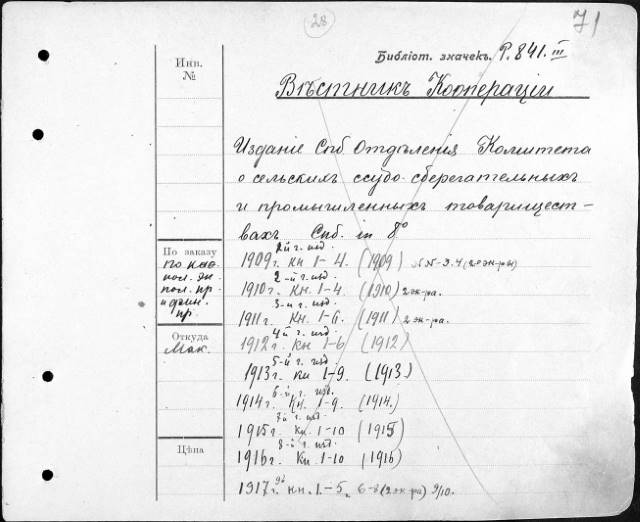 28
71
Библіот. значекъ. Р. 841. III
Инв.
№
Вѣстникъ Кооперации
Изданіе Спб Отдѣленія Комитета
о сельскихъ ссудо-сберегательныхъ
и промышленныхъ товарищест-
вахъ Спб. in 8°
По заказу
по каѳ.
пол. эк
пол. пр.
и фин.
пр.
Откуда
Мак.
Цѣна
2й г. изд.
1909 г. Кн 1-4. (1909) №№-3.4 (2 экз-ры)
2-й г. изд.
1910 г. Кн. 1-4. (1910) 2 эк-ра.
3-й г. изд.
1911 г. Кн. 1-6. (1911) 2 эк-ра.
4й г. изд.
1912 г. Кн 1-6 (1912)
5-й г. изд.
1913 г. Кн 1-9. (1913)
6-й г. изд.
1914 г. Кн. 1-9. (1914.)
7й г. изд.
1915 г. Кн. 1-10 (1915)
8-й г. изд.
1916 г. Кн. 1-10 (1916)
1917 г. кн. 1.-5. 6-8 (2 эк-ра) 9/10.